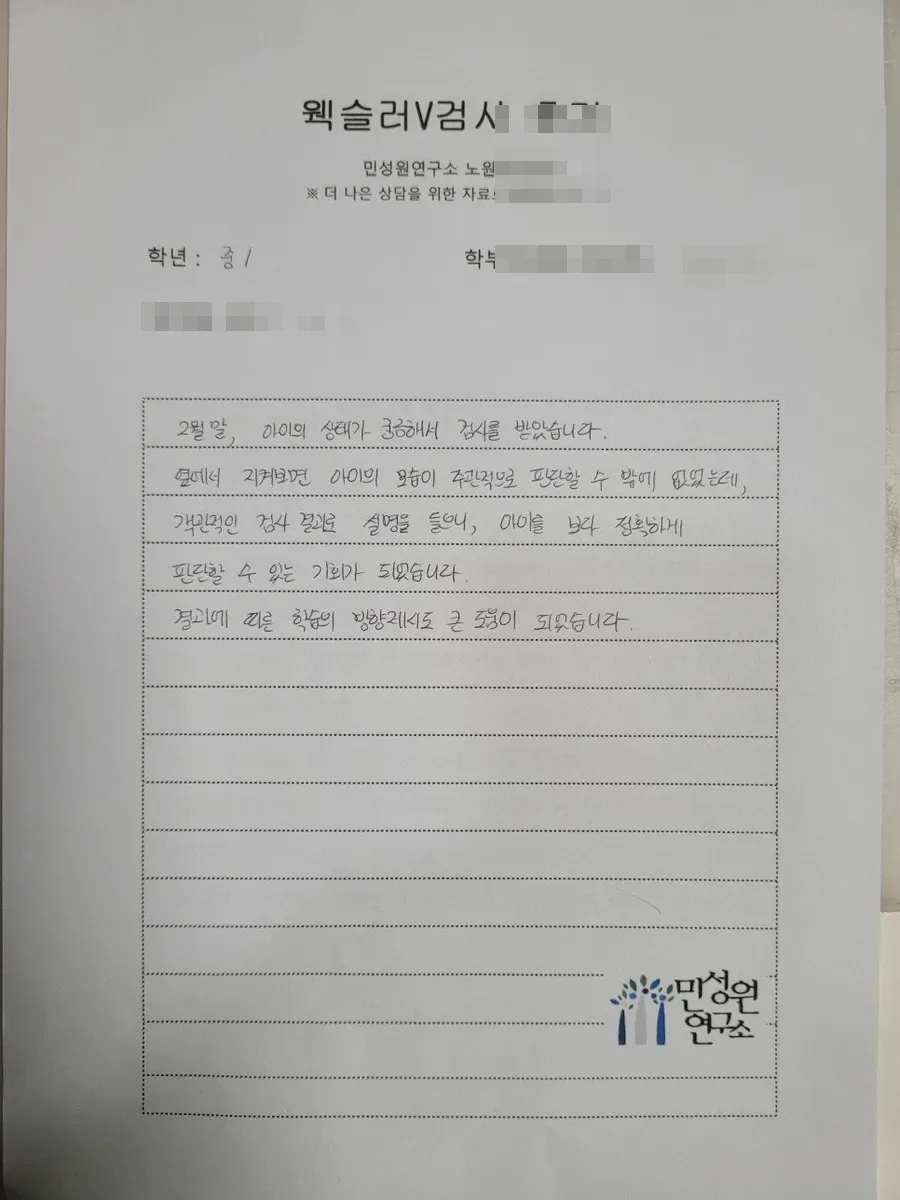 웩슬러V검사
민성원연구소 노원
※ 더 나은 상담을 위한 자료로
학년 : 중1
학부
2월 말, 아이의 상태가 궁금해서 검사를 받았습니다.
옆에서 지켜보면 아이의 모습이 주관적으로 판단할 수 밖에 없었는데,
객관적인 검사 결과로 설명을 들으니, 아이를 보다 정확하게
판단할 수 있는 기회가 되었습니다.
결과에 따른 학습의 방향제시도 큰 도움이 되었습니다.
민성원
연구소